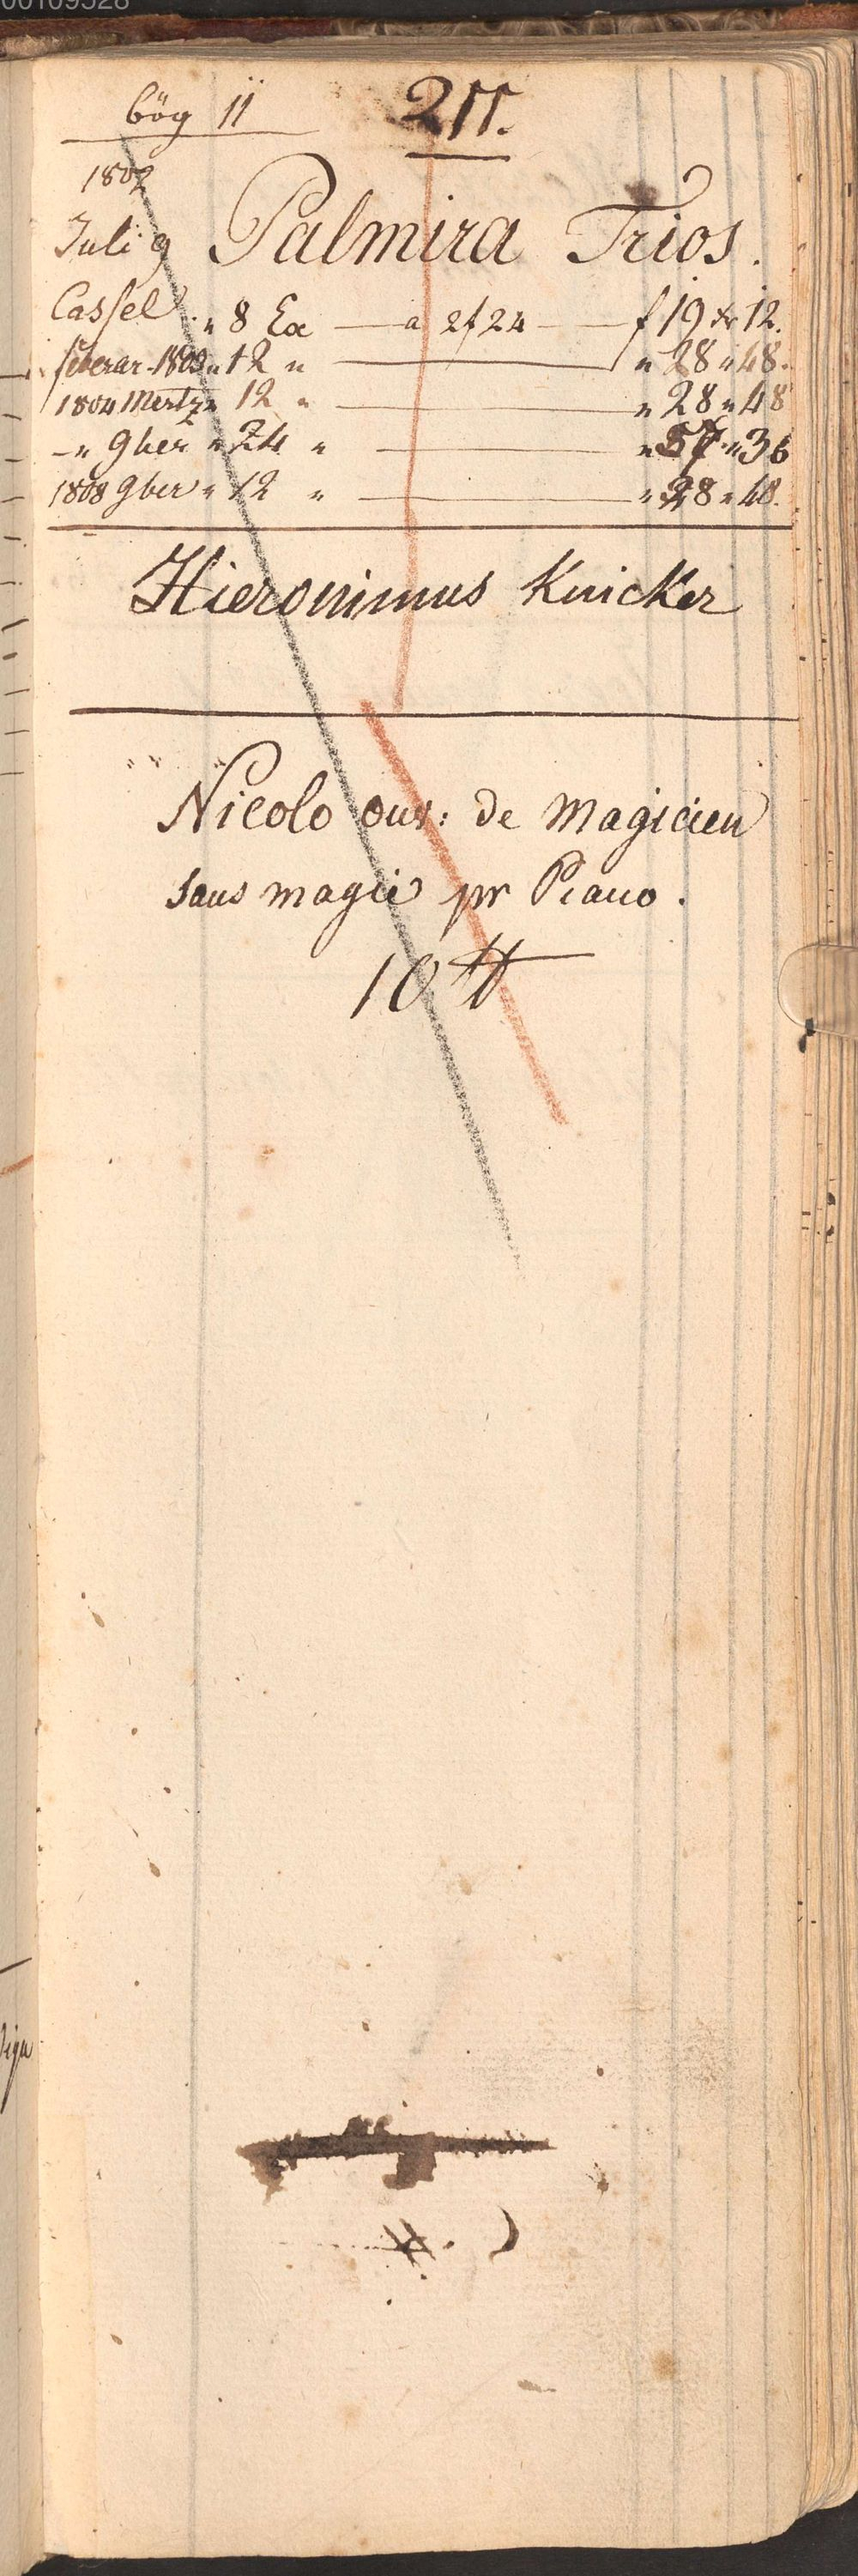 00109528
bög 11 211.
1802
Juli 9 Palmira Trios.
Cassel " 8 Ex — a 2f 24 — f 19 xr 12.
feberar 1803 " 12 " — " 28 " 48.
1804 Mertz " 12 " — " 28 " 48
— " 9ber " 24 " — " 57 " 36
1808 9ber " 12 " — " 28 " 48.
Hieronimus Knicker
Nicolo ouv: de Magicien
sans magie pr Piano.
10 tt